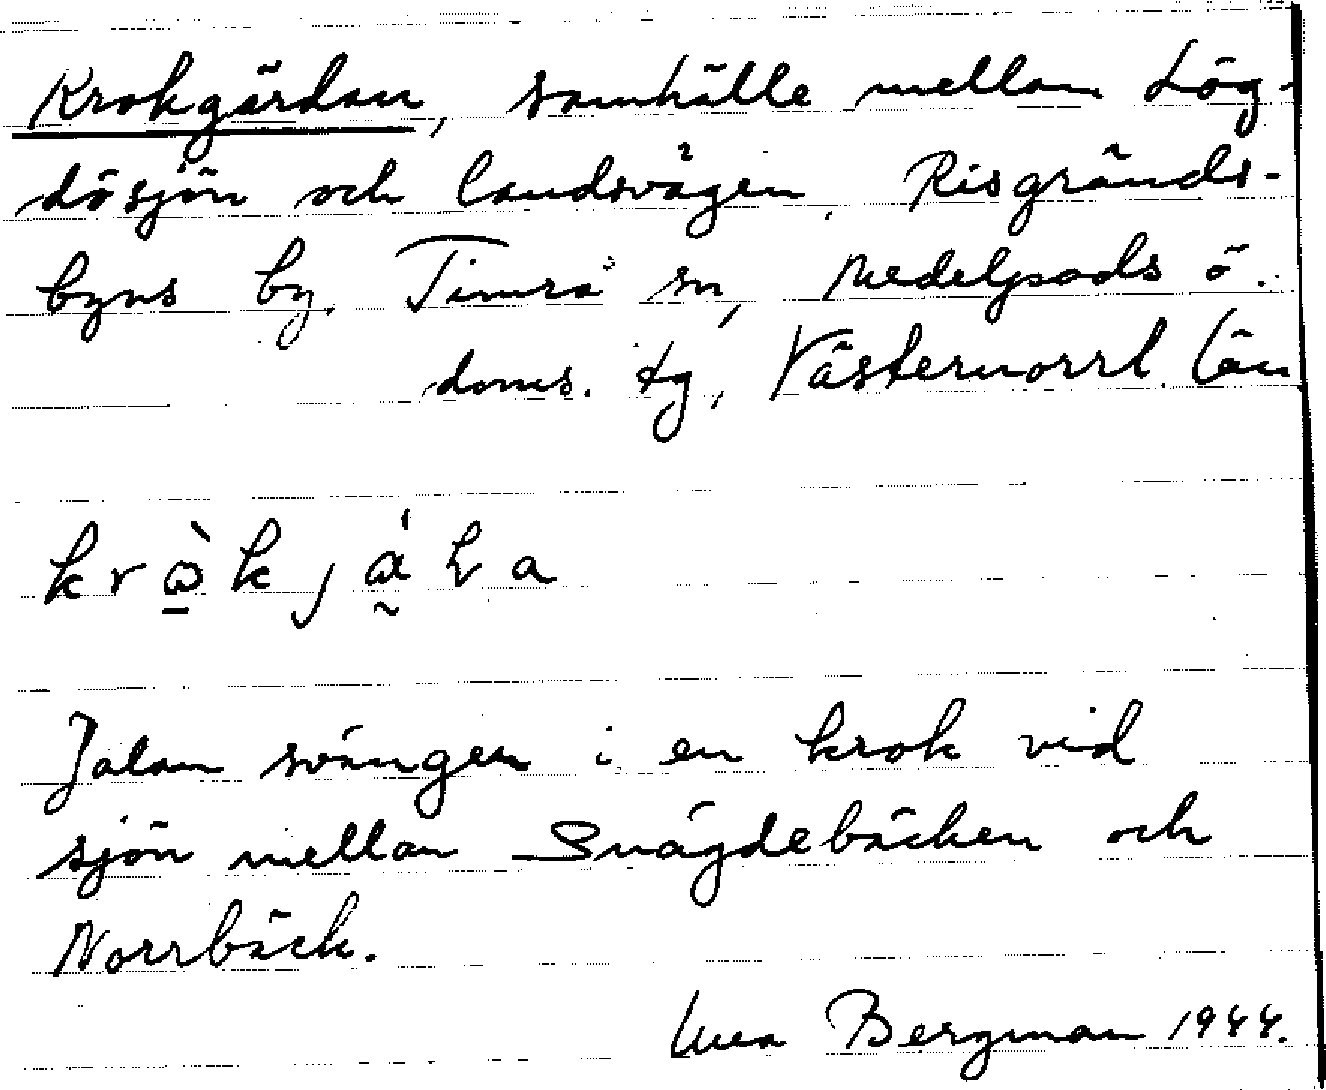 Krokgärdan, samhälle mellan Lög-
dösjön och landsvägen, Risgränds-
byns by, Timrå sn, Medelpads ö.
doms. tg, Västernorrl. län
Jalan svänger i en krok vid
sjön mellan Snägdebäcken och
Norrbäck.
Bergman 1944.